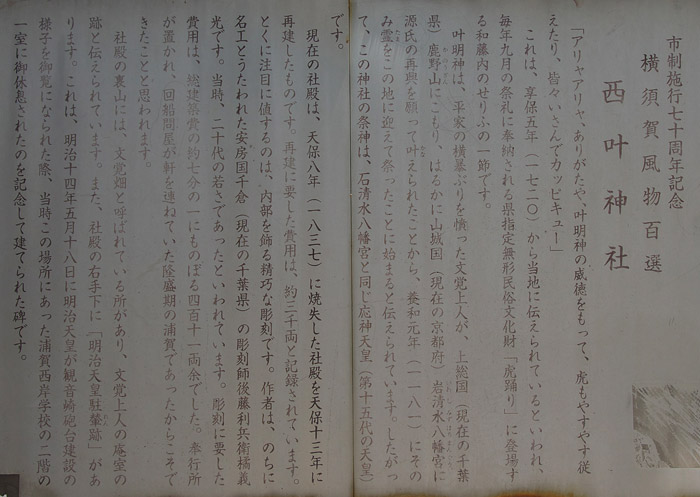 市制施行七十周年記念
横須賀風物百選
西叶神社
「アリャアリャ、ありがたや、叶明神の威徳をもって、虎もやすやす従
えたり、皆々いさんでカッピキュー」
これは、享保五年(一七二〇)から当地に伝えられているといわれ、
毎年九月の祭礼に奉納される県指定無形民俗文化財「虎踊り」に登場す
る和藤内のせりふの一節です。
叶明神は、平家の横暴ぶりを憤った文覚上人が、上総国(現在の千葉
県)鹿野山にこもり、はるかに山城国(現在の京都府)岩清水八幡宮に
源氏の再興を願って叶えられたことから、養和元年(一一八一)にその
み霊をこの地に迎えて祭ったことに始まると伝えられています。したがっ
て、この神社の祭神は、石清水八幡宮と同じ応神天皇(第十五代の天皇)
です。
現在の社殿は、天保八年(一八三七)に焼失した社殿を天保十三年に
再建したものです。再建に要した費用は、約三千両と記録されています。
とくに注目に値するのは、内部を飾る精巧な彫刻です。作者は、のちに
名工とうたわれた安房国千倉(現在の千葉県)の彫刻師後藤利兵衛橘義
光です。当時、二十代の若さであったといわれています。彫刻に要した
費用は、総建築費の約七分の一にものぼる四百十一両余でした。奉行所
が置かれ、回船問屋が軒を連ねていた隆盛期の浦賀であったからこそで
きたことと思われます。
社殿の裏山には、文覚畑と呼ばれている所があり、文覚上人の庵室の
跡と伝えられています。また、社殿の右手下に「明治天皇駐輦跡」があ
ります。これは、明治十四年五月十八日に明治天皇が観音崎砲台建設の
様子を御覧になられた際、当時この場所にあった浦賀西岸学校の二階の
一室に御休息されたのを記念して建てられた碑です。